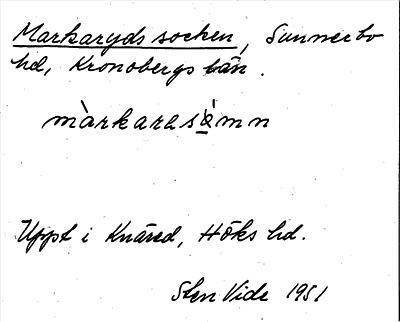 Markaryds socken, Sunnerbo
hd, Kronobergs län.
màrkaras
Uppt i Knäred, Höks hd.
Sten Vide 1951